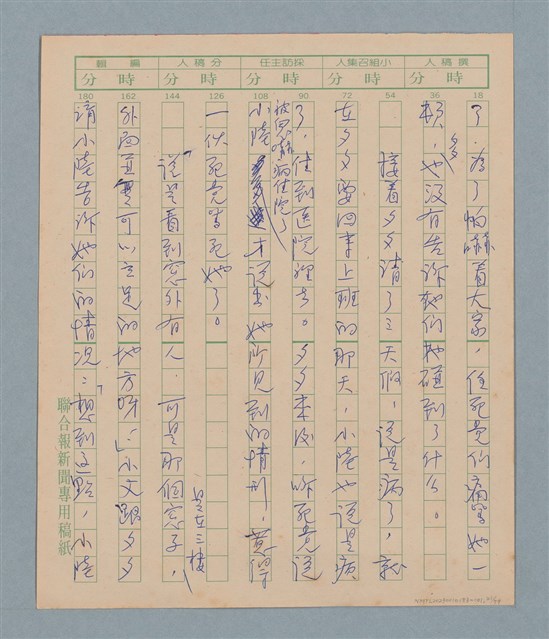 撰稿人 小組召集人 採訪主任 分稿人 編輯
時 分 時 分 時 分 時 分 時 分
18 36 54 72 90 108 126 144 162 180
了.為了怕嚇着大家,住死党們痛罵她一
頓,夕夕也沒有告訴她們她碰到了什么。
接着夕夕請了三天假,說是病了,就
在夕夕要回來上班的那天,小陸也說是病
了,住到医院裡去。夕夕來後,听死党說
小陸被回嚇病住院了
才說出她所見到的情形,惹得
一伙死党笑死她了。
說是看到窗外有人.可是那個窗子,是在三樓
外面並可以立足的地方呀!」小文跟夕夕
請小陸告訴她们的情况:「想到這點,小陸
聯合報新聞專用稿紙